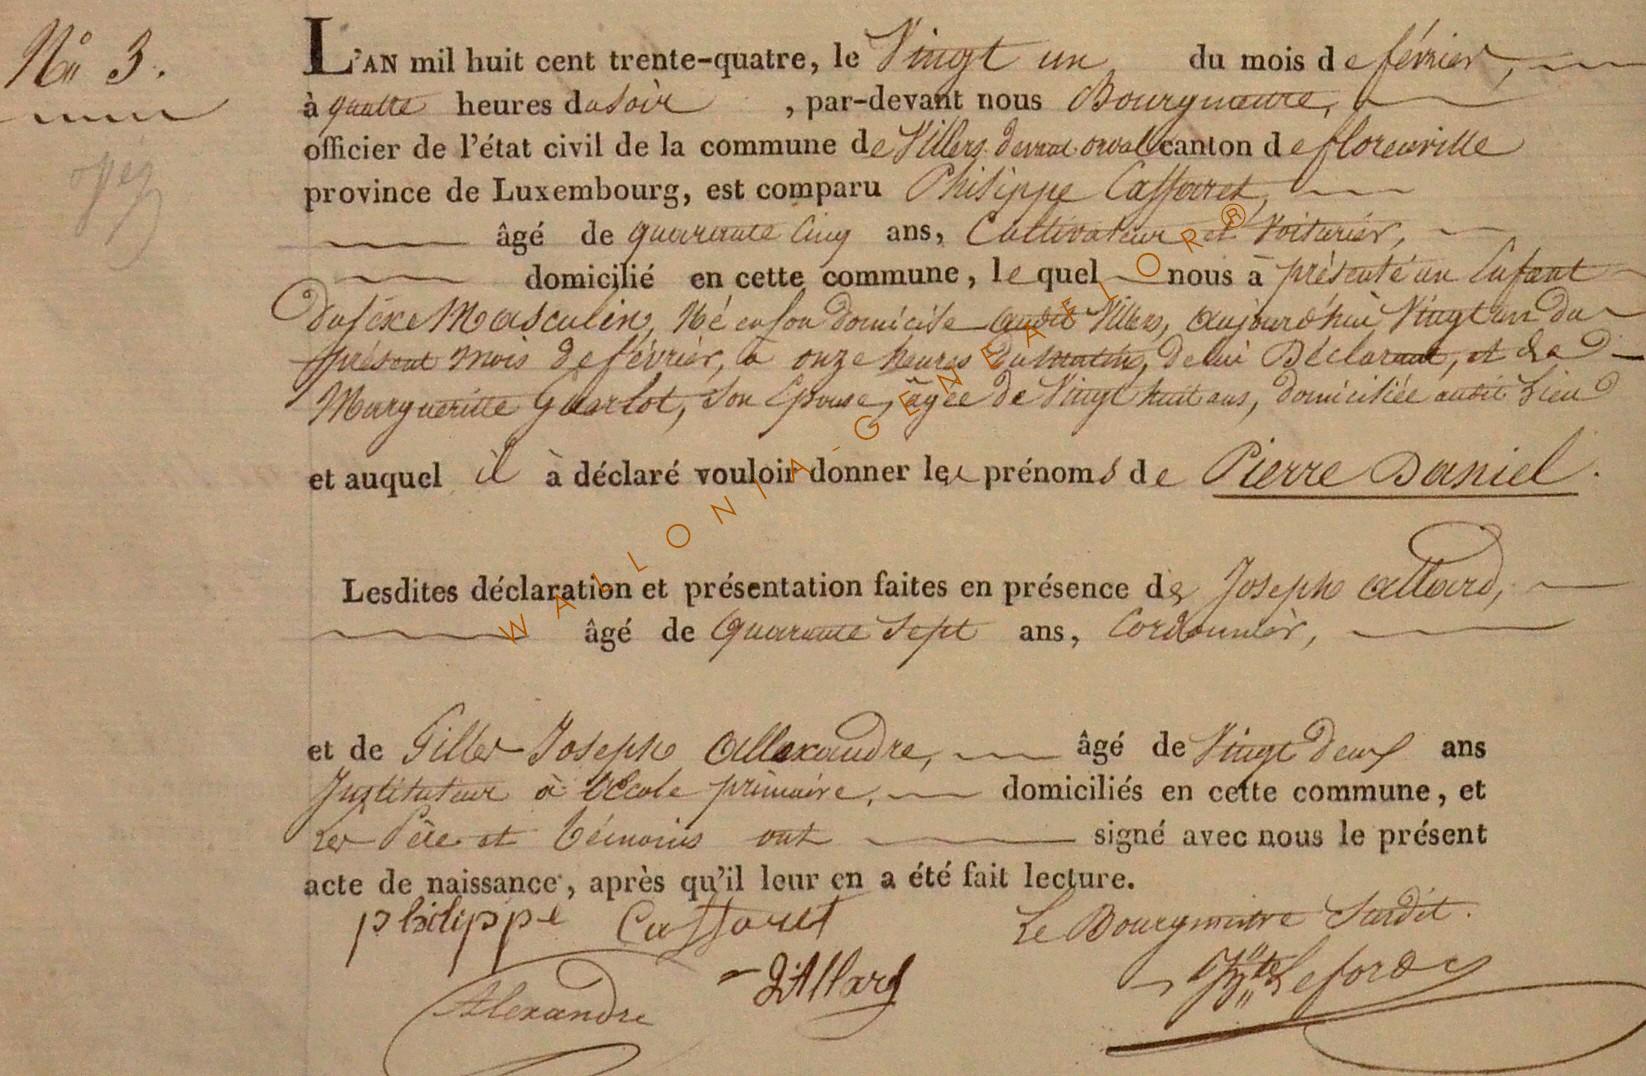 N° 3.
L'AN mil huit cent trente-quatre, le Vingt un du mois de février,
à quatre heures du soir, par-devant nous Bourgmetre,
officier de l'état civil de la commune de Villers devant orval canton de florenville
province de Luxembourg, est comparu Philippe Cassoret,
âgé de quarante Cinq ans, Cultivateur et Voiturier,
domicilié en cette commune, le quel nous à présenté un Enfant
du séxe Masculin, Né en son domicile audit Villers, aujourd'hui Vingt un du
présent mois de février, à onze heures du matin, de lui Déclarant, et de
Margueritte Guarlot, son Epouse, âgée de Vingt huit ans, domiciliée audit Lieu
et auquel il à déclaré vouloir donner les prénoms de Pierre Daniel.
Lesdites déclaration et présentation faites en présence de Joseph allard,
âgé de Quarante Sept ans, Cordonnier,
et de Gilles Joseph Allexandre, âgé de Vingt deux ans
Instituteur à l'Ecole primaire, domiciliés en cette commune, et
Les Père et témoins ont signé avec nous le présent
acte de naissance, après qu'il leur en a été fait lecture.
philippe Cassoret
Le Bourgmetre Susdit.
JAllard
Leford
Alexandre
WALLONIA-GENEAELOR®